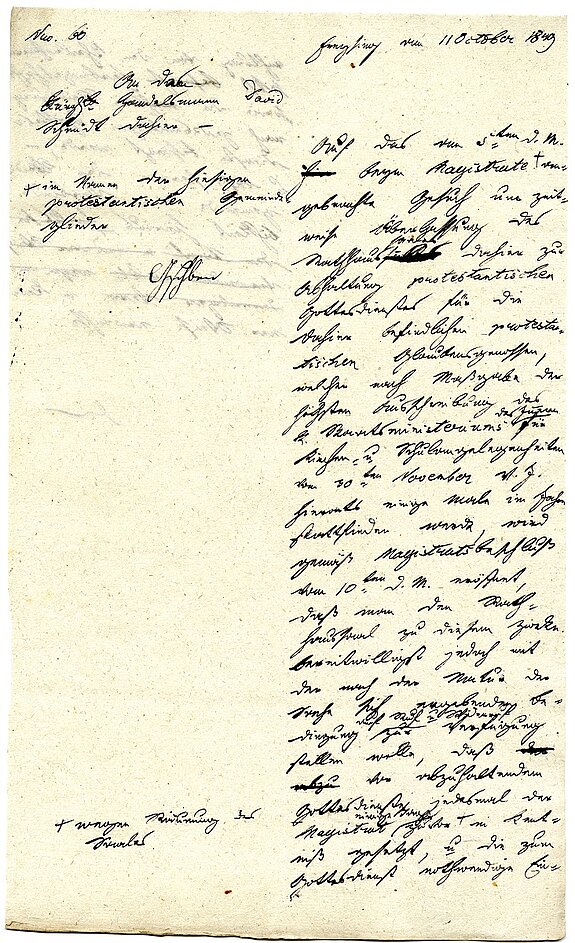 Nro. 60
Freysing am 11 October 1849
An den
bürgl. Handelsmann David
Schmidt dahier –
+ im Namen der hiesigen
protestantischen Gemeinde
glieder
Auf das am 5ten d. M.
beym Magistrate + an-
gebrachte Gesuch um zeit-
weise Überlassung des
Rathhaussaales dahier zur
Abhaltung protestantischen
Gottesdienstes für die
dahier befindlichen protestan-
tischen Glaubensgenossen,
welcher nach Maßgabe der
höchsten Ausschreibung des
k. Staatsministeriums des Innern für
Kirchen- u Schulangelegenheiten
vom 30ten November v. J.
hierorts einige Male im Jahre
stattfinden werde, wird
gemäß Magistratsbeschluß
vom 10ten d. M. eröffnet,
daß man den Rath-
haussaal zu diesem Zwecke
bereitwilligst jedoch mit
der nach der Natur der
Sache sich ergebenden Be-
dingung auf Ruf u Widerruf zur Verfügung
stellen wolle, daß
vor abzuhaltendem
Gottesdienste jedesmal der
Magistrat einige Tage zuvor + in Kent-
niß gesetzt, u die zum
Gottesdienst nothwendige Ein-
+ wegen Räumung des
Saales